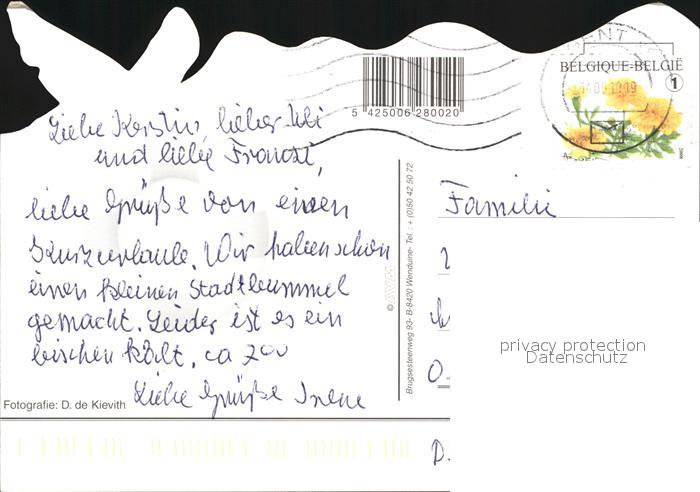 GENT
BELGIQUE-BELGIË
1
5 425006 280020
Liebe Kerstin, lieber Uli
und liebe Franzi,
liebe Grüße von einen
Kurzurlaub. Wir haben schon
einen kleinen Stadtbummel
gemacht. Leider ist es ein
bischen kalt, ca
Liebe Grüße Irene
Fotografie: D. de Kievith
Brugsesteenweg 93- B-8420 Wenduine- Tel.: + (0)50 42 50 72
Familie
privacy protection
Datenschutz
D.